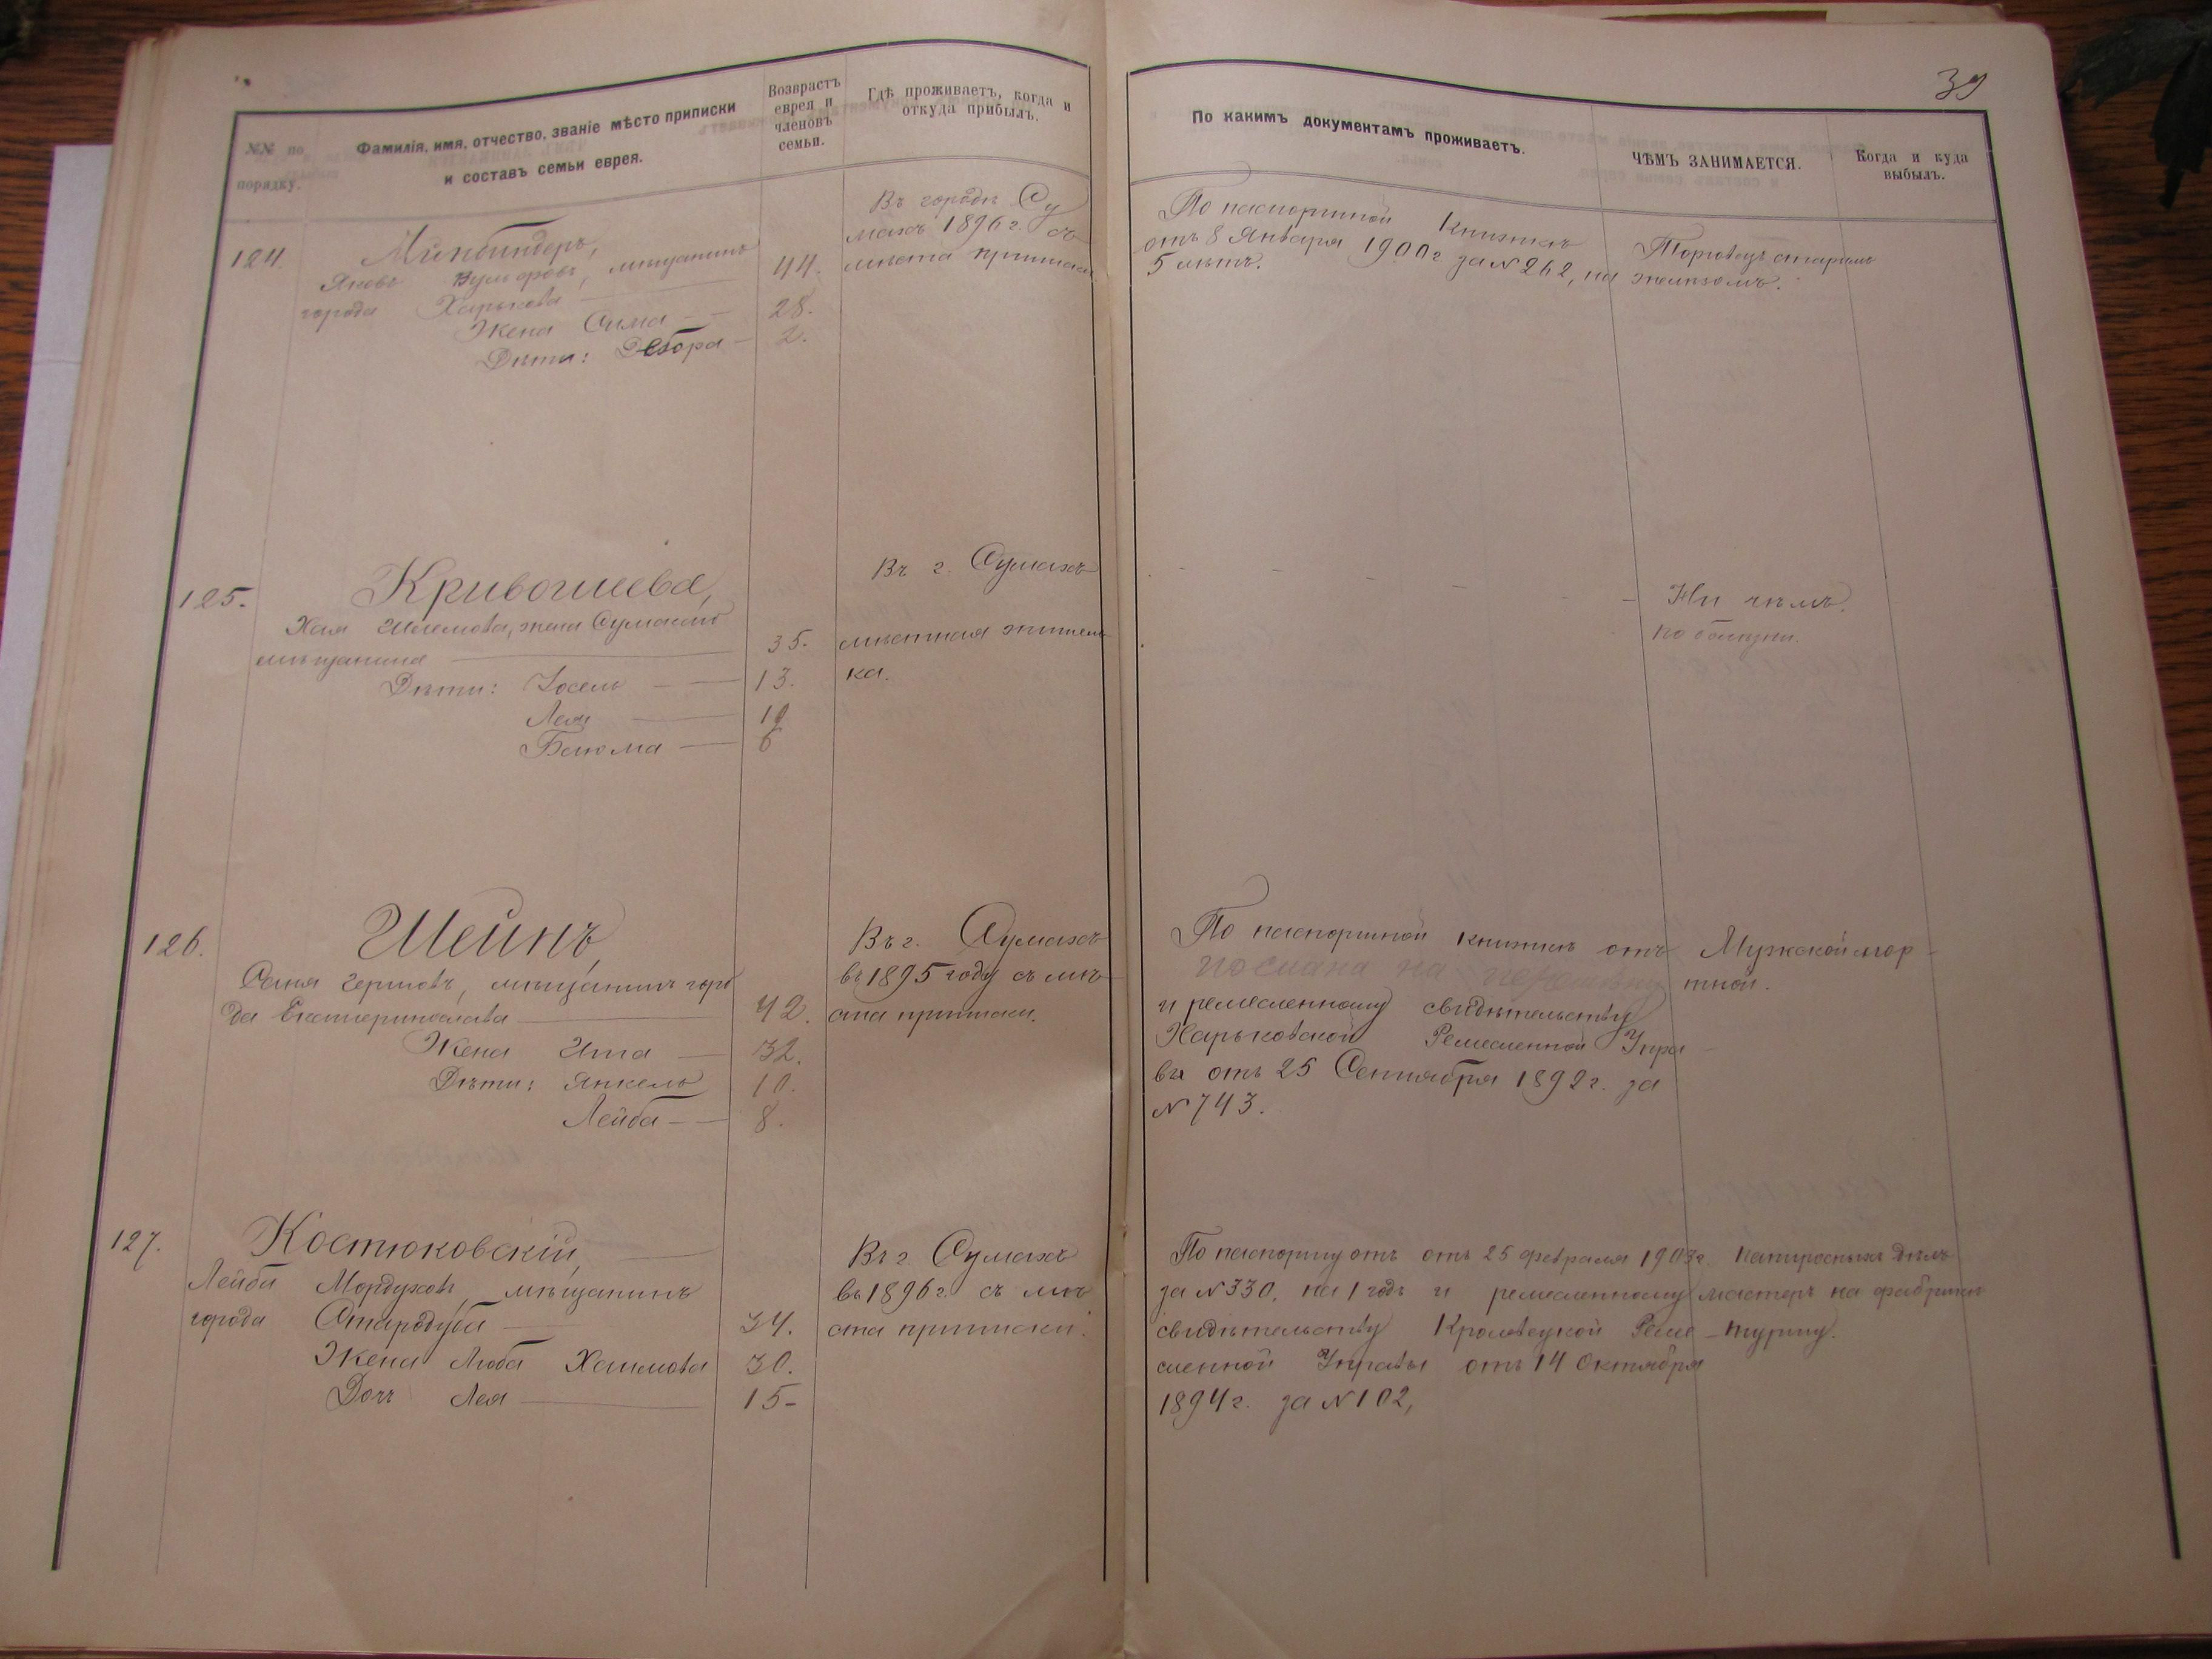 39
№№ по порядку.
Фамилія, имя, отчество, званіе мѣсто приписки
и составъ семьи еврея.
Возврастъ
еврея и
членовъ
семьи.
Гдѣ проживаетъ, когда и
откуда прибылъ.
По какимъ документамъ проживаетъ.
ЧѢМЪ ЗАНИМАЕТСЯ.
Когда и куда
выбылъ.
124.
Яковъ Вульфовъ, мѣщанинъ
города Харькова 44.
Жена Сима 28.
Дѣти: Дебора 2.
Въ городѣ Су
махъ 1896 г. съ
мѣста приписки
По паспортной Книжкѣ
отъ 8 Января 1900 г за № 262, на
5 лѣтъ.
Торговецъ старымъ
желѣзомъ.
125.
Кривошеева,
жена Сумскаго
мѣщанина 35.
Дѣти: Іосель 13.
Лея
6
Въ г. Сумахъ
мѣстная житель
ка.
Ни чѣмъ.
по болѣзни.
126.
Шейнъ,
мѣщанинъ горо
да Екатеринослава 42.
Жена Ита 32.
Дѣти: Янкель 10.
Лейба 8.
Въ г. Сумахъ
въ 1895 году съ мѣ
ста приписки.
По паспортной книжкѣ отъ
послана на
и ремесленному свидѣтельству
Харьковской Ремесленной Упра
вы отъ 25 Сентября 1892 г. за
№ 743.
Мужской пор-
тной.
127.
Костюковскій,
Лейба Мордуховъ, мѣщанинъ
города Стародуба 34.
Жена Люба Хаимова 30.
Дочь Лея 15-
Въ г. Сумахъ
въ 1896 г. съ мѣ
ста приписки.
По паспорту отъ отъ 25 февраля 1903 г.
за № 330, на 1 годъ и ремесленному
свидѣтельству Кролевецкой Реме-
сленной Управы отъ 14 Октября
1894 г. за № 102,
Папиросныхъ дѣлъ
мастеръ на фабрикѣ